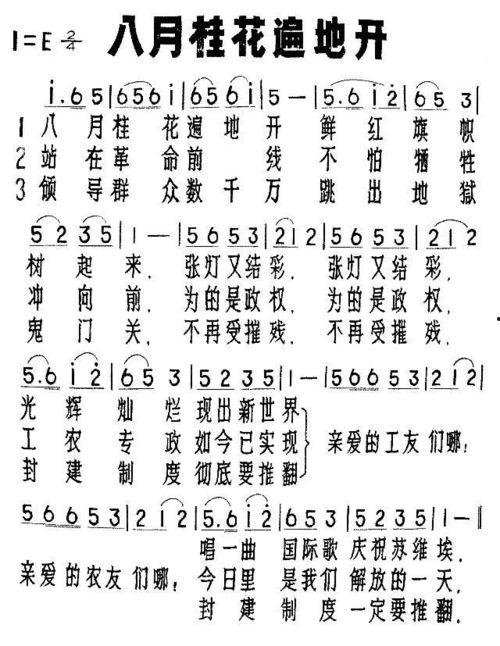 1=E 2/4 八月桂花遍地开
i.65|656i|656i|5—|5.6i2|653|
1八月桂花遍地开 鲜红旗帜
2站在革命前线 不怕牺牲
3领导群众数千万 跳出地狱
5235|1—|5653|212|5653|212|
树起来，张灯又结彩，张灯又结彩，
冲向前，为的是政权，为的是政权，
鬼门关，不再受摧残，不再受摧残，
5.6i2|653|5235|1—|56653|212|
光辉灿烂现出新世界
工农专政如今已实现 亲爱的工友们哪！
封建制度彻底要推翻
56653|212|5.6i|653|5235|1—‖
唱一曲国际歌庆祝苏维埃．
亲爱的农友们哪！今日里是我们解放的一天．
封建制度一定要推翻．